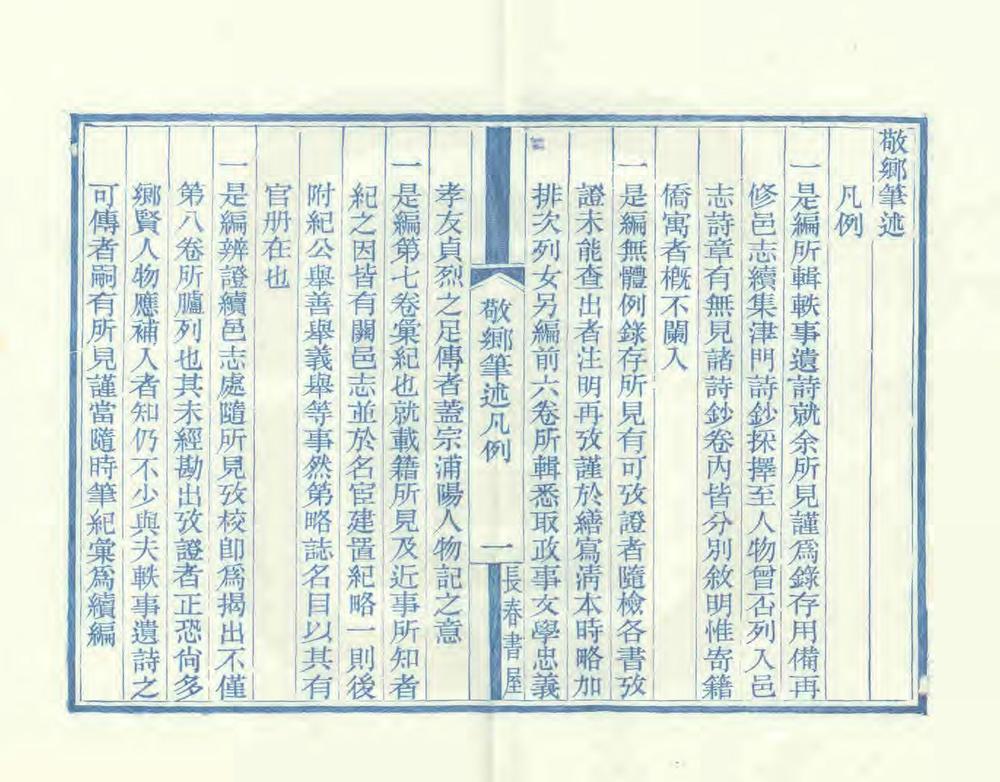 敬鄉筆述
凡例
一是編所輯軼事遺詩就余所見謹爲錄存用備再
修邑志續集津門詩鈔採擇至人物曾否列入邑
志詩章有無見諸詩鈔卷內皆分別敘明惟寄籍
僑寓者槪不闌入
一是編無體例錄存所見有可攷證者隨檢各書攷
證未能查出者注明再攷謹於繕寫淸本時略加
排次列女另編前六卷所輯悉取政事文學忠義
敬鄉筆述凡例
一
長春書屋
孝友貞烈之足傳者蓋宗浦陽人物記之意
一是編第七卷彙紀也就載籍所見及近事所知者
紀之因皆有關邑志並於名宦建置紀略一則後
附紀公舉善舉義舉等事然第略誌名目以其有
官册在也
一是編辨證續邑志處隨所見攷校卽爲揭出不僅
第八卷所臚列也其未經勘出攷證者正恐尙多
鄉賢人物應補入者知仍不少與夫軼事遺詩之
可傳者嗣有所見謹當隨時筆紀彙爲續編